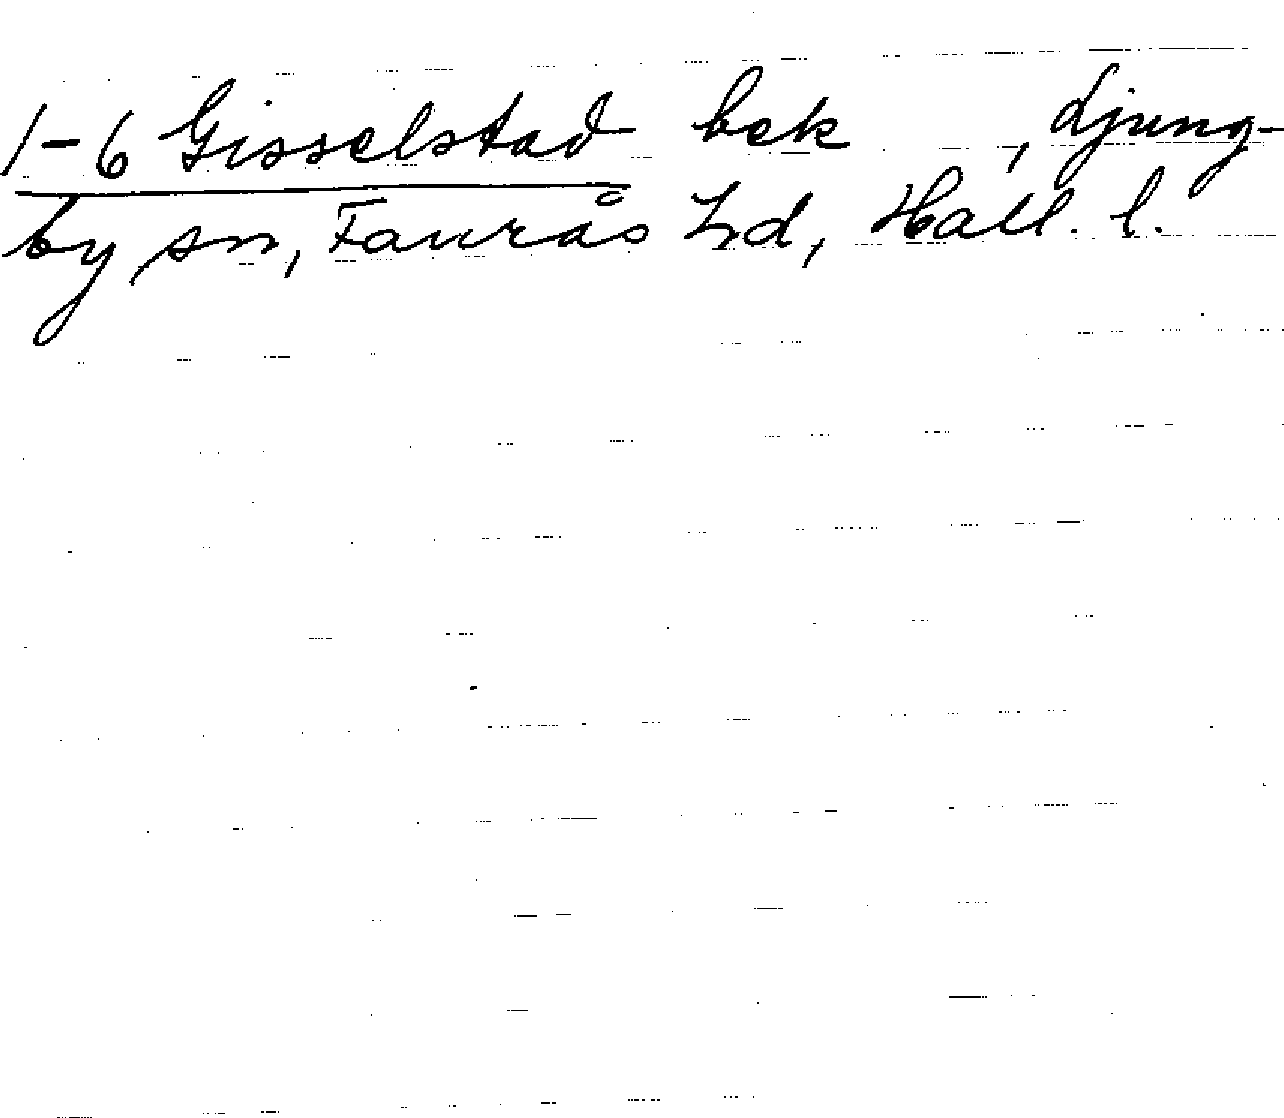 1-6 Gisselstad bek , Ljung-
by sn, Faurås hd, Hall. l.